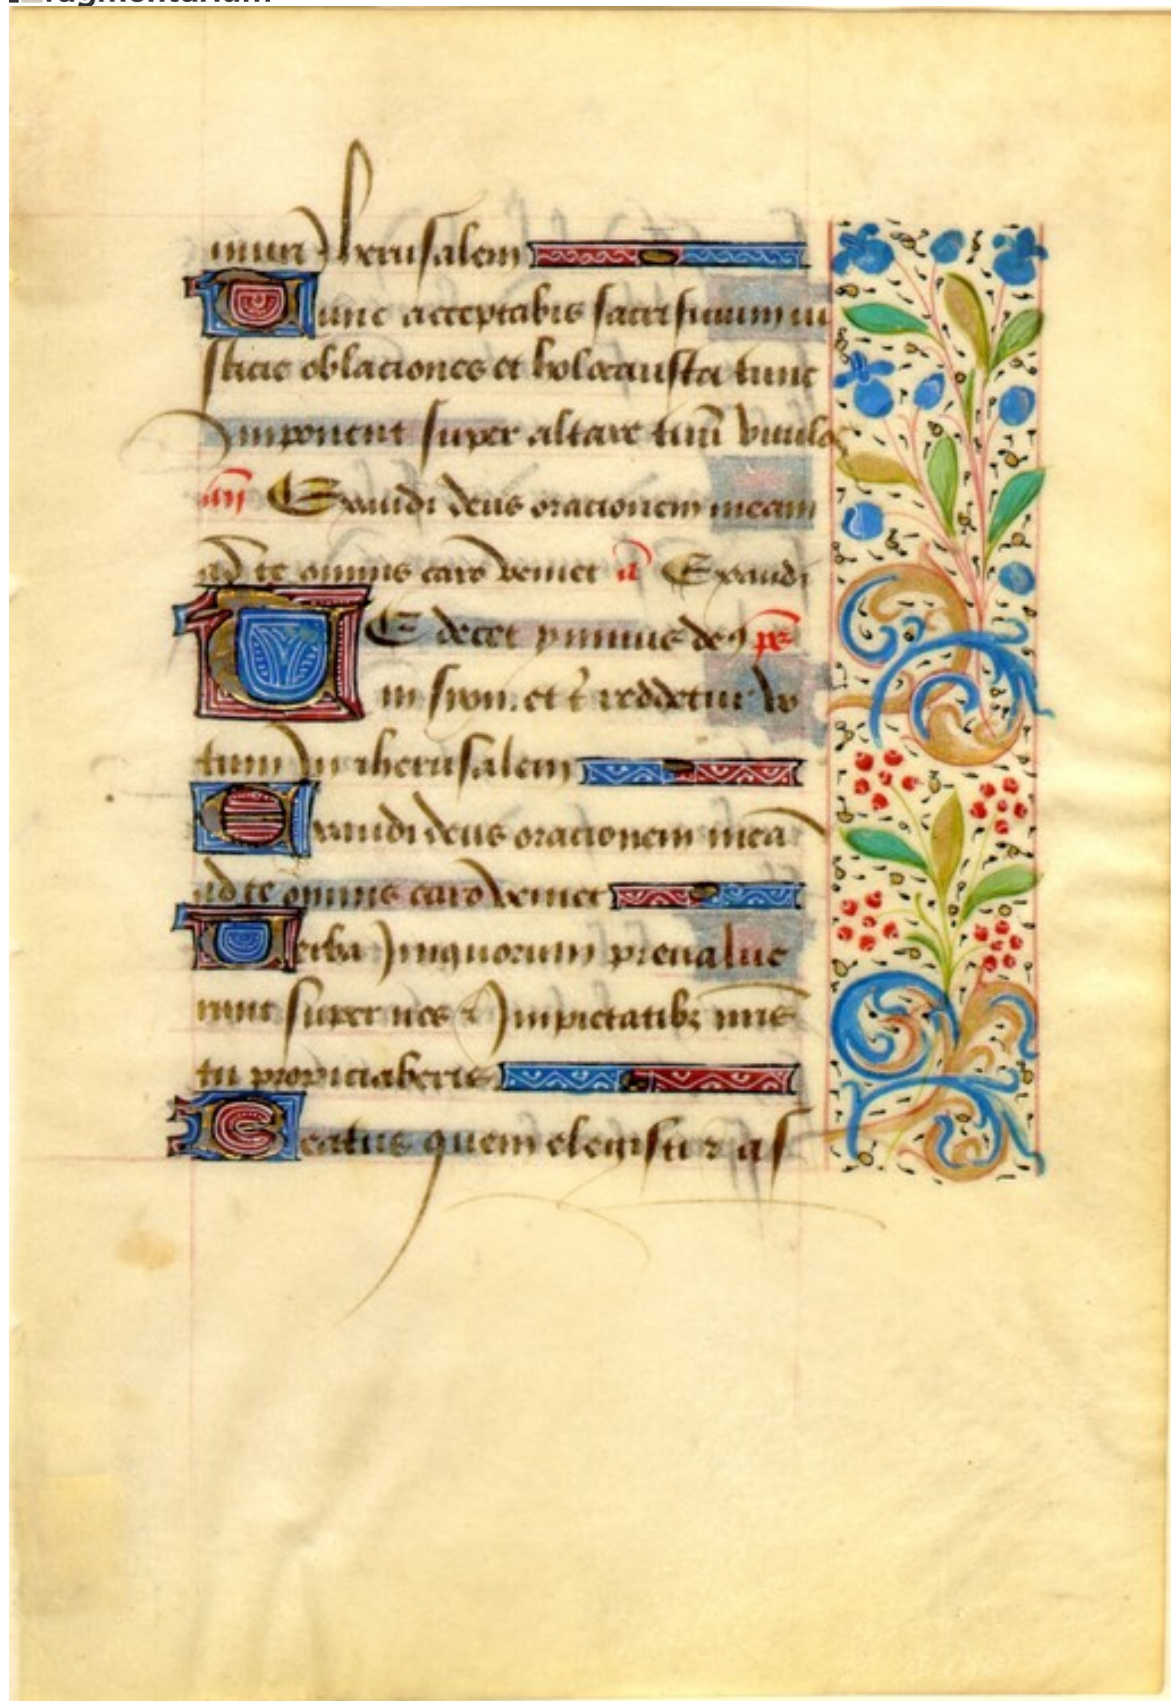 fragmentarium
murі Iherusalem
Tunc acceptabis sacrificium iu
sticie oblaciones et holocausta tunc
Imponent super altare tuū vitulos
añ Exaudi deus orationem meam
ad te omnis caro veniet a Exaudi
TE decet ymnus deꝯ ps
in syon. et t̄ reddetur vo
tum In iherusalem
Exaudi deus orationem meā
ad te omnis caro veniet
Verba Iniquorum preualue
runt super nos et Impietatibꝫ nr̄is
tu propiciaberis
Beatus quem elegisti et as